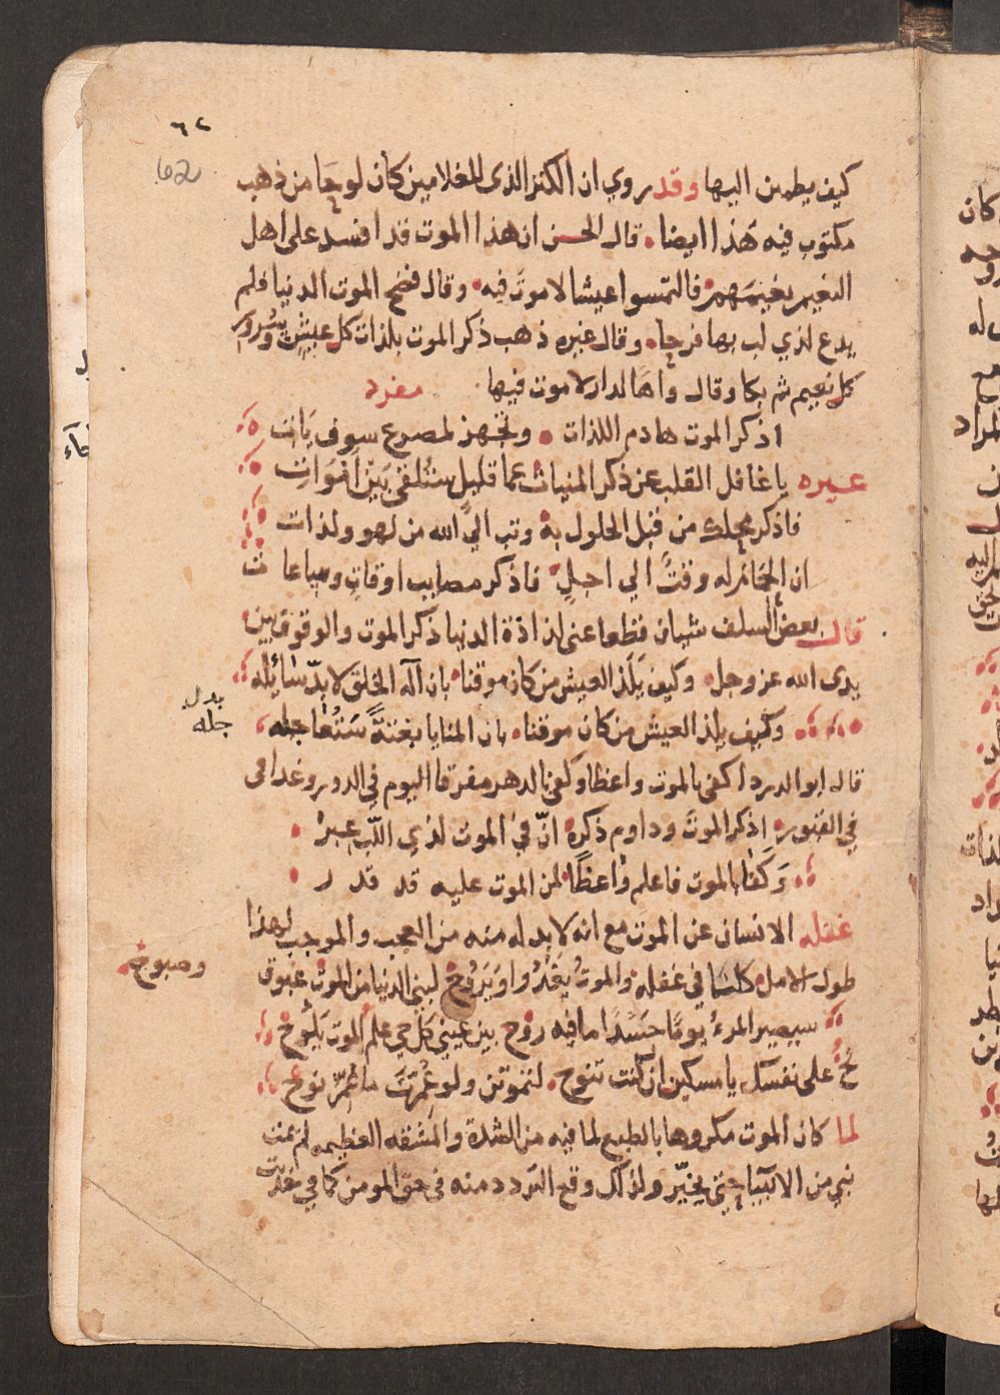 ٦٢
62
كيف يطمئن اليها وقد روي ان الكنز الذي للغلامين كان لوحا من ذهب
مكتوب فيه هذا ايضا قال الحسن ان هذا الموت قد افسد على اهل
النعيم نعيمهم فالتمسوا عيشا لا موت فيه وقال فضح الموت الدنيا فلم
يدع لذي لب بها فرحا وقال غيره ذهب ذكر الموت بلذات كل عيش وسرور
كل نعيم ثم بكا وقال واها لدار لا موت فيها مفرد
اذكر الموت هادم اللذات وتجهز لمصرع سوف يات
غيره يا غافل القلب عن ذكر المنيات عما قليل ستلقى بين اموات
فاذكر محلك من قبل الحلول به وتب الي الله من لهو ولذات
ان الحمام له وقت الي اجل فاذكر مصايب اوقات وساعات
قال بعض السلف شيان قطعا عني لذاذة الدنيا ذكر الموت والوقوف بين
يدى الله عز وجل وكيف يلذ العيش من كان موقنا بان اله الخلق لا بد سائله
وكيف يلذ العيش من كان موقنا بان المنايا بغتة ستعاجله
بدل
جله
قال ابو الدرداء كفى بالموت واعظا وكفى بالدهر مفرقا اليوم في الدور وغدا في
في القبور اذكر الموت وداوم ذكره ان في الموت لذي اللب عبر
وكفا بالموت فاعلم واعظا لمن الموت عليه قد قدر
غفله الانسان عن الموت مع انه لا بد له منه من العجب والموجب لهذا
طول الامل كلنا في غفله والموت يغدوا ويروح لبني الدنيا من الموت غبوق
وصبوح
سيصير المرء يوما جسدا ما فيه روح بين عيني كل حي علم الموت يلوح
نح على نفسك يا مسكين ان كنت تنوح لتموتن ولو عمرت ما عمر نوح
لما كان الموت مكروها بالطبع لما فيه من الشدة والمشقه العظيمه لم يمت
نبي من الانبيا حتي يخير ولذلك وقع التردد منه في حق المومن كما في حديث